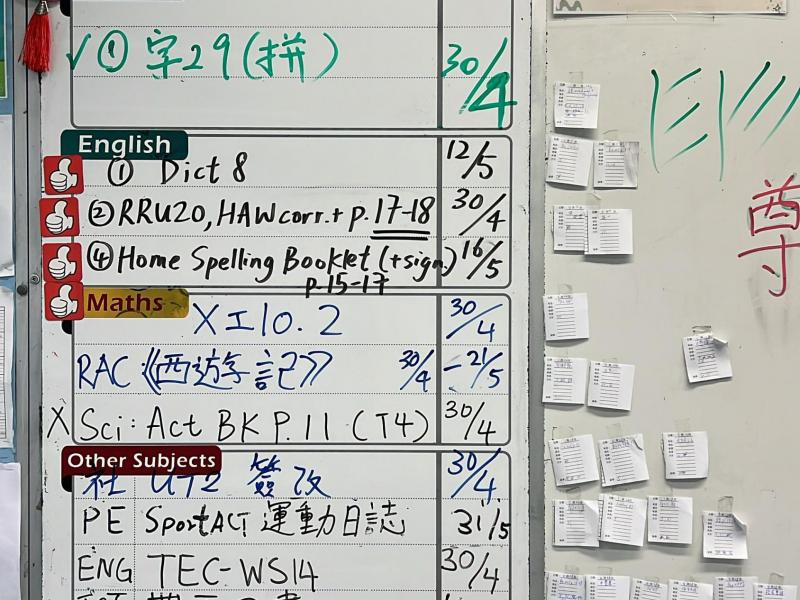 ✓ ① 字29(拼) 30/4
English
① Dict 8 12/5
② RRU20, HAW corr. + p. 17-18 30/4
④ Home Spelling Booklet (+sign.) 16/5
p.15-17
Maths
X工10.2 30/4
RAC 《西遊記》 30/4 - 21/5
X Sci: Act BK P.11 (T4) 30/4
Other Subjects
社 UT2 簽改 30/4
PE SportACT 運動日誌 31/5
ENG TEC-WS14 30/4
尊